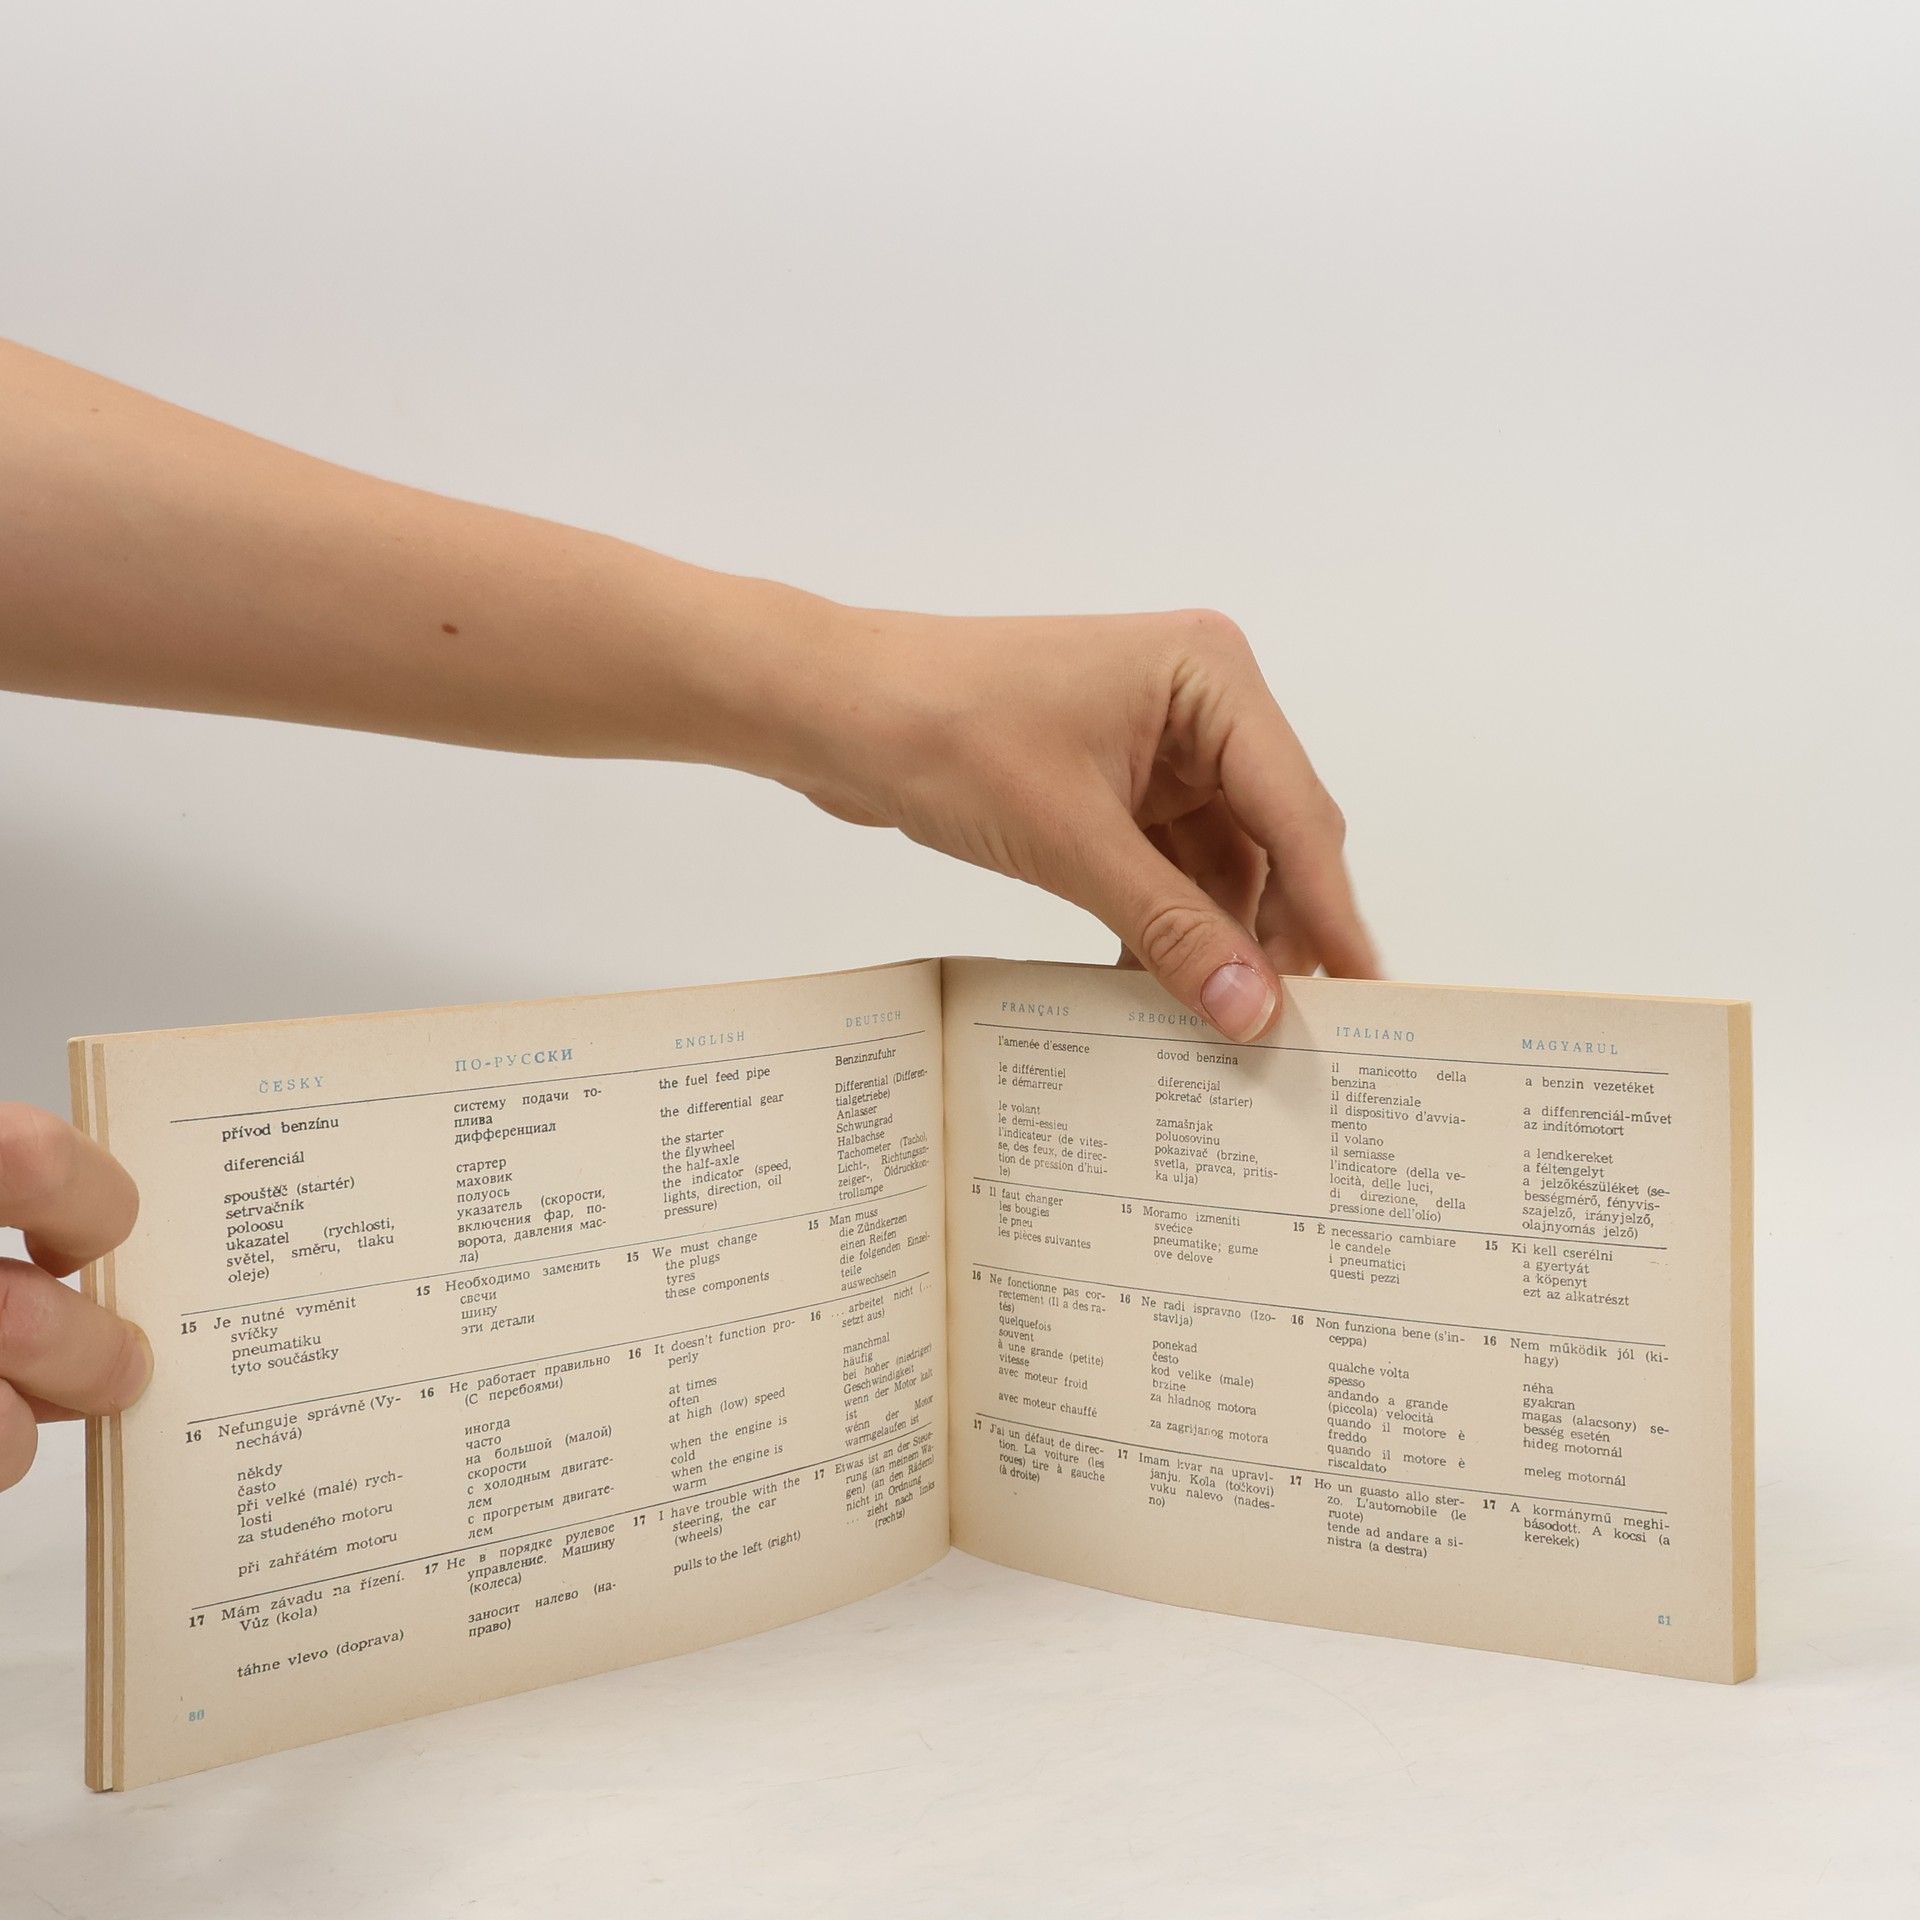 ČESKY
přívod benzínu
diferenciál
spouštěč (startér)
setrvačník
poloosu
ukazatel (rychlosti,
světel, směru, tlaku
oleje)
15 Je nutné vyměnit
svíčky
pneumatiku
tyto součástky
16 Nefunguje správně (Vy-
nechává)
někdy
často
při velké (malé) rych-
losti
za studeného motoru
při zahřátém motoru
17 Mám závadu na řízení.
Vůz (kola)
táhne vlevo (doprava)
80
ПО-РУССКИ
систему подачи то-
плива
дифференциал
стартер
маховик
полуось
указатель (скорости,
включения фар, по-
ворота, давления мас-
ла)
15 Необходимо заменить
свечи
шину
эти детали
16 Не работает правильно
(С перебоями)
иногда
часто
на большой (малой)
скорости
с холодным двигате-
лем
с прогретым двигате-
лем
17 Не в порядке рулевое
управление. Машину
(колеса)
заносит налево (на-
право)
ENGLISH
the fuel feed pipe
the differential gear
the starter
the flywheel
the half-axle
the indicator (speed,
lights, direction, oil
pressure)
15 We must change
the plugs
tyres
these components
16 It doesn't function pro-
perly
at times
often
at high (low) speed
when the engine is
cold
when the engine is
warm
17 I have trouble with the
steering, the car
(wheels)
pulls to the left (right)
DEUTSCH
Benzinzufuhr
Differential (Differen-
tialgetriebe)
Anlasser
Schwungrad
Halbachse
Tachometer (Tacho),
Licht-, Richtungsan-
zeiger-, Öldruckkon-
trollampe
15 Man muss
die Zündkerzen
einen Reifen
die folgenden Einzel-
teile
auswechseln
16 ... arbeitet nicht (...
setzt aus)
manchmal
häufig
bei hoher (niedriger)
Geschwindigkeit
wenn der Motor kalt
ist
wénn der Motor
warmgelaufen ist
17 Etwas ist an der Steue-
rung (an meinem Wa-
gen) (an den Rädern)
nicht in Ordnung
... zieht nach links
(rechts)
FRANÇAIS
l'amenée d'essence
le différentiel
le démarreur
le volant
le demi-essieu
l'indicateur (de vites-
se, des feux, de direc-
tion de pression d'hui-
le)
15 Il faut changer
les bougies
le pneu
les pièces suivantes
16 Ne fonctionne pas cor-
rectement (Il a des ra-
tés)
quelquefois
souvent
à une grande (petite)
vitesse
avec moteur froid
avec moteur chauffé
17 J'ai un défaut de direc-
tion. La voiture (les
roues) tire à gauche
(à droite)
SRBOCHOR
dovod benzina
diferencijal
pokretač (starter)
zamašnjak
poluosovinu
pokazivač (brzine,
svetla, pravca, pritis-
ka ulja)
15 Moramo izmeniti
svećice
pneumatike; gume
ove delove
16 Ne radi ispravno (Izo-
stavlja)
ponekad
često
kod velike (male)
brzine
za hladnog motora
za zagrijanog motora
17 Imam kvar na upravl-
janju. Kola (točkovi)
vuku nalevo (nades-
no)
ITALIANO
il manicotto della
benzina
il differenziale
il dispositivo d'avvia-
mento
il volano
il semiasse
l'indicatore (della ve-
locità, delle luci,
di direzione, della
pressione dell'olio)
15 È necessario cambiare
le candele
i pneumatici
questi pezzi
16 Non funziona bene (s'in-
ceppa)
qualche volta
spesso
andando a grande
(piccola) velocità
quando il motore è
freddo
quando il motore è
riscaldato
17 Ho un guasto allo ster-
zo. L'automobile (le
ruote)
tende ad andare a si-
nistra (a destra)
MAGYARUL
a benzin vezetéket
a diffenrenciál-művet
az indítómotort
a lendkereket
a féltengelyt
a jelzőkészüléket (se-
bességmérő, fényvis-
szajelző, irányjelző,
olajnyomás jelző)
15 Ki kell cserélni
a gyertyát
a köpenyt
ezt az alkatrészt
16 Nem működik jól (ki-
hagy)
néha
gyakran
magas (alacsony) se-
besség esetén
hideg motornál
meleg motornál
17 A kormánymű meghi-
básodott. A kocsi (a
kerekek)
81